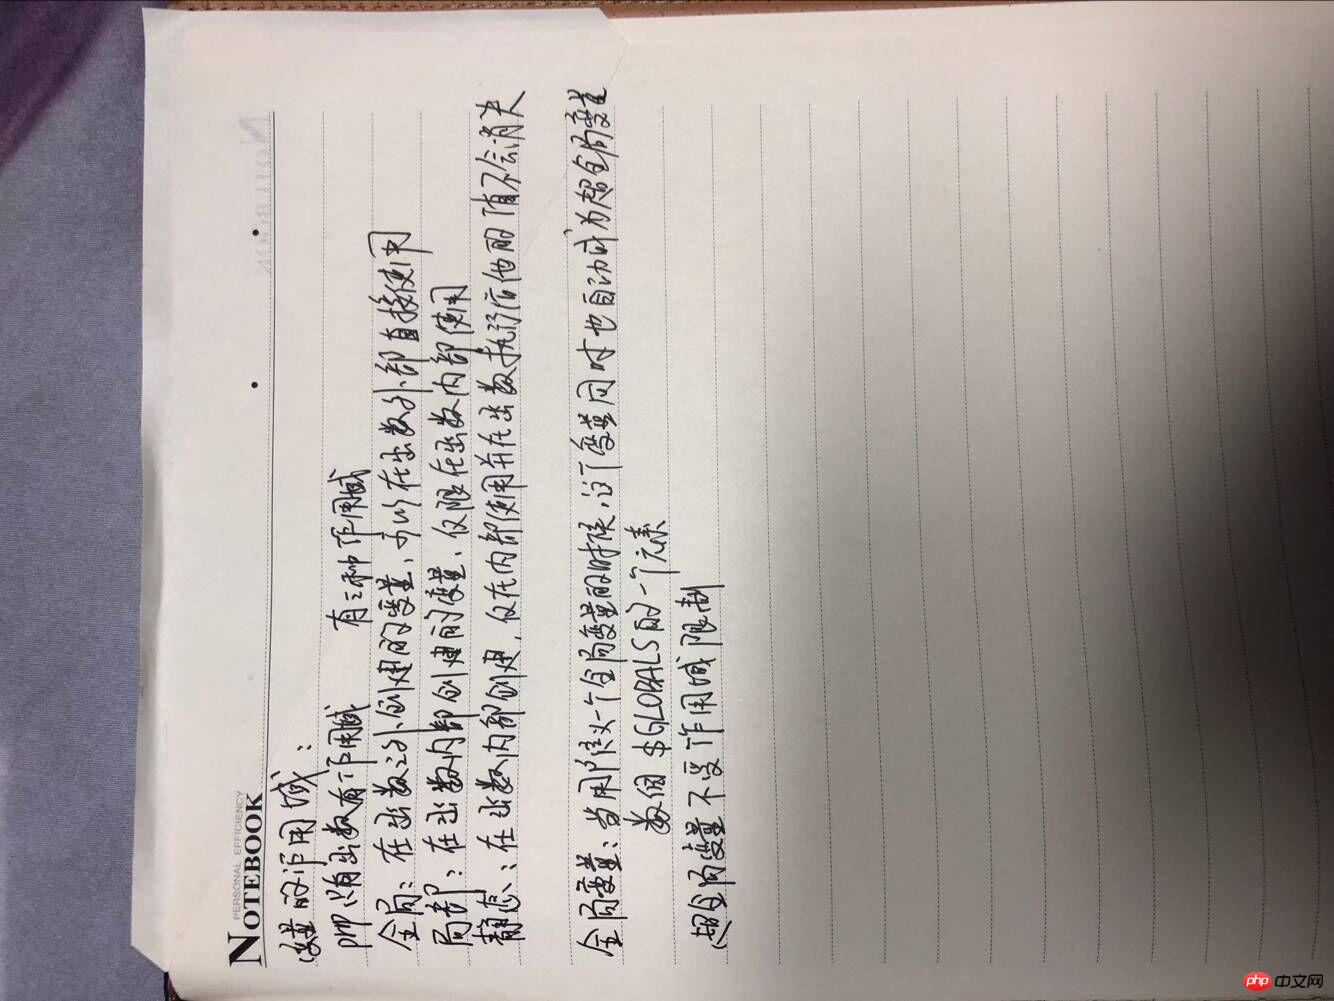 PERSONAL EFFICIENCY
NOTEBOOK
变量的作用域:
PHP只有函数有作用域 有三种作用域
全局:在函数之外创建的变量,可以在函数外部直接使用
局部:在函数内部创建的变量,仅限在函数内部使用
静态:在函数内部创建,仅在内部使用并在函数执行后他的值不会消失
全局变量:当用户定义一个全局变量的时候,这个变量同时也自动成为超全局变量
数组$GLOBALS的一个元素
超全局变量不受作用域限制
NOTEBOOK
php中文网